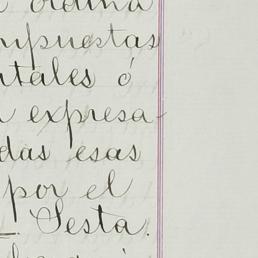 ordina
mpuestas
ntales ó
expresa-
das esas
por el
Sesta.